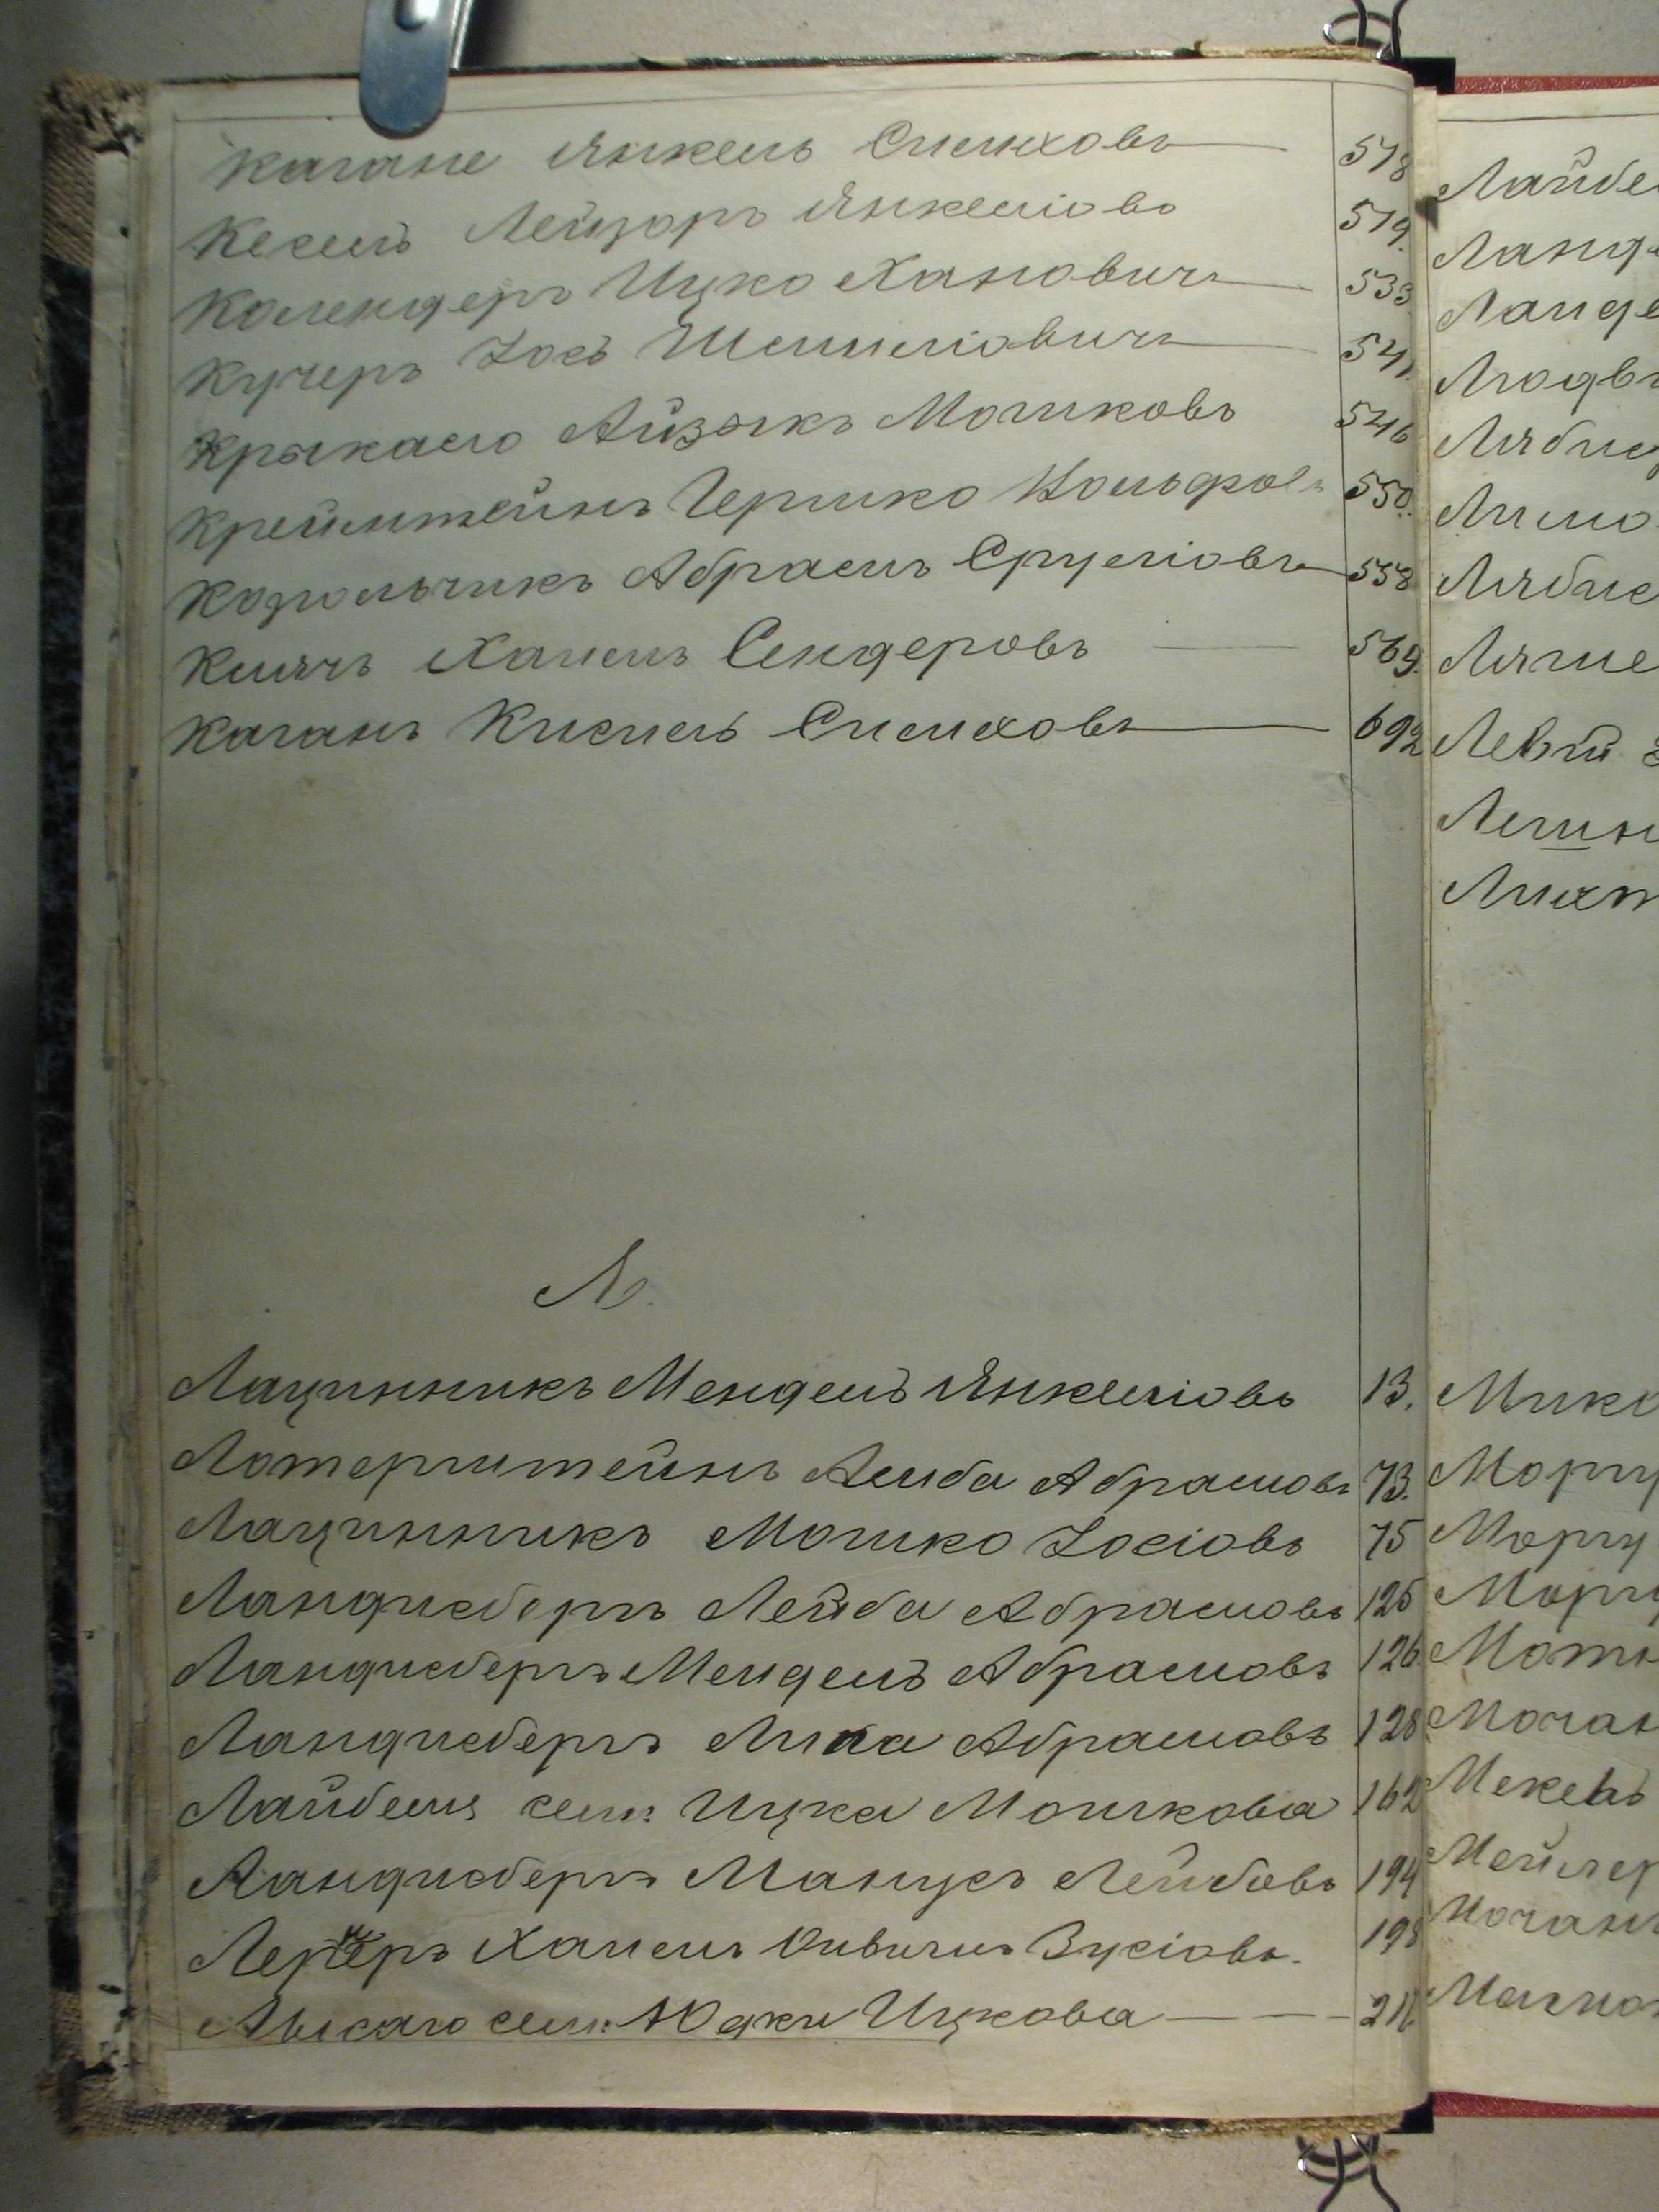 Кагане Янкель Симховъ 578
Кесель Лейзоръ Янкеліовъ 579.
Календеръ Ицко Хаповичъ 533.
Кучеръ Іось Шмиліовичъ 541.
Крыкаго Айзыкъ Мошковъ 546
Крейнштейнъ Гершко 550.
Козольчикъ Абрамъ Сруліовъ 558
Клячъ Хаимъ Сендеровъ 569.
Каганъ Кисиль Симховъ 692
Л.
Лацинникъ Мендель Янкеліовъ 13.
Лотерштейнъ Лейба Абрамовъ 73.
Лацинникъ Мошко Іосіовъ 75
Ландисбергъ Лейба Абрамовъ 125
Ландисбергъ Мендель Абрамовъ 126.
Ландисбергъ Абрамовъ 128
Лайбель сем: Ицка Мошкова 162
Ландисбергъ Манусъ Лейбовъ 194
Лернеръ Хаимъ Зусіовъ. 198
Лысаго сем: Юдки Ицкова 211.
Лайбе
Ланд
Ланде
Людв
Лябис
Лимо
Лябис
Лягше
Левит
Легин
Лихт
Мико
Моргу
Моргу
Моргу
Мотк
Мочан
Мекель
Мейлер
Мочанъ